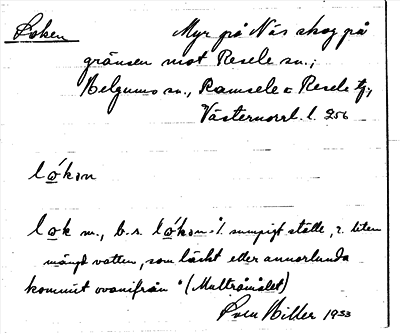 Loken Myr på Näs skog på
gränsen mot Resele sn.;
Helgums sn., Ramsele o Resele tg.,
Västernorrl. l. 256
lókan
lok m., b.s. lókan "sumpigt ställe, liten
mängd vatten, som läckt eller annorlunda
kommit ovanifrån" (Multråmålet)
Sven Hiller 1933